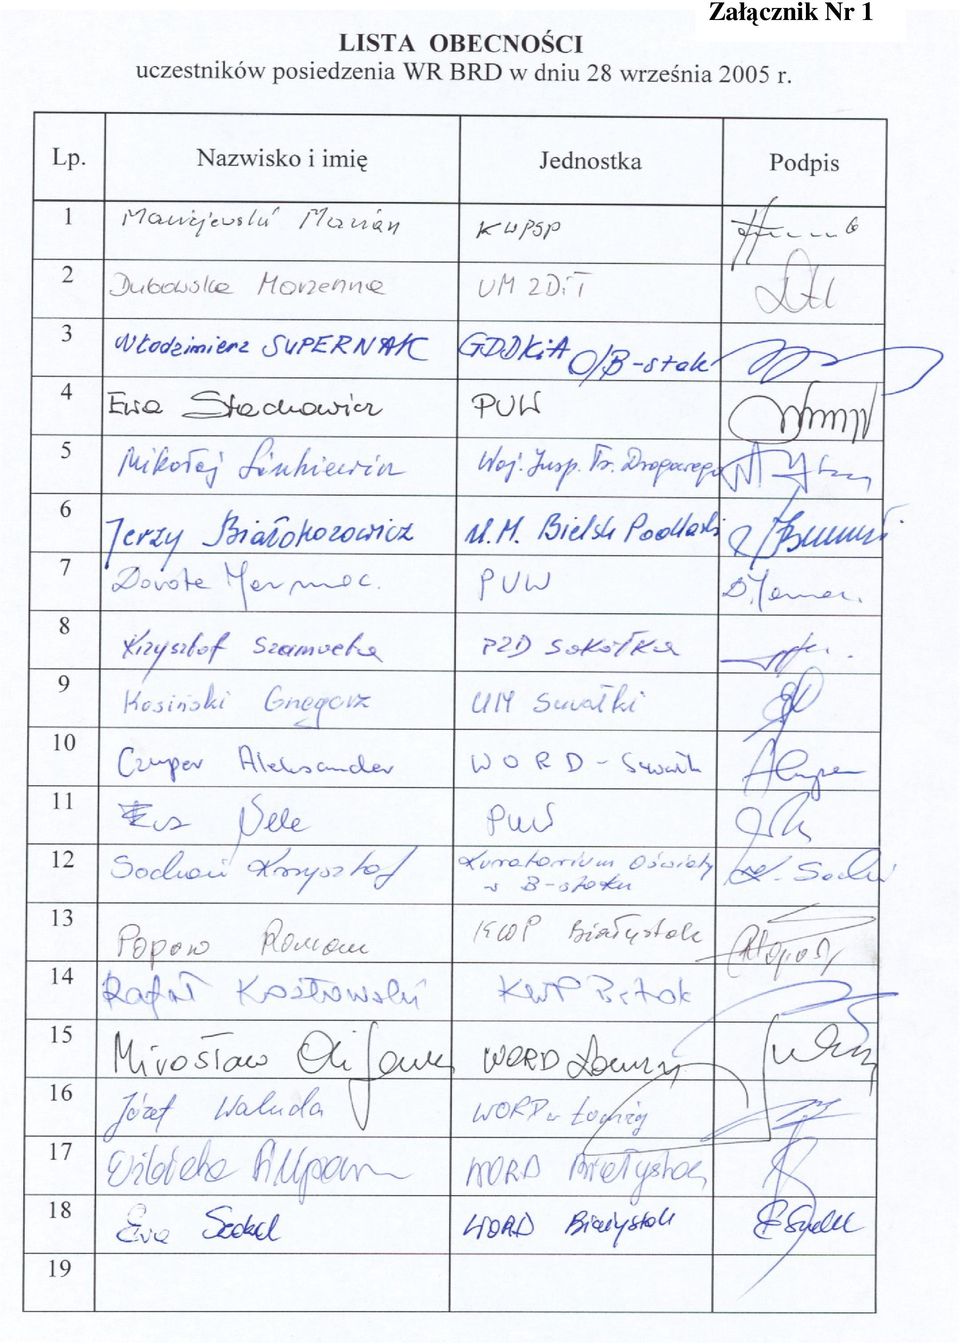 Załącznik Nr 1
LISTA OBECNOŚCI
uczestników posiedzenia WR BRD w dniu 28 września 2005 r.
Lp. Nazwisko i imię Jednostka Podpis
1 Maciejewski Marian KWPSP
2 Dubowska Marzenna UM ZDiT
3 Włodzimierz SUPERNAK GDDKiA O/B-stok
4 Ewa Stachowicz PUW
5 Mikołaj Sinkiewicz Woj. Insp. Tr. Drogowego
6 Jerzy Białokozowicz U.M. Bielsk Podlaski
7 Dorota PUW
8 Krzysztof Szamocka PZD Sokółka
9 Kosiński Grzegorz UM Suwałki
10 Czuper Aleksander WORD - Suwałk
11 Ewa PUW
12 Sochoń Krzysztof Kuratorium Oświaty
w B-stoku K. Sochoń
13 Popow Roman KWP Białystok
14 Rafał Kozłowski KWP B-stok
15 Mirosław WORD Łomży
16 Józef Waluda WORD w Łomży
17 Elżbieta WORD Białystok
18 Ewa WORD Białystok
19